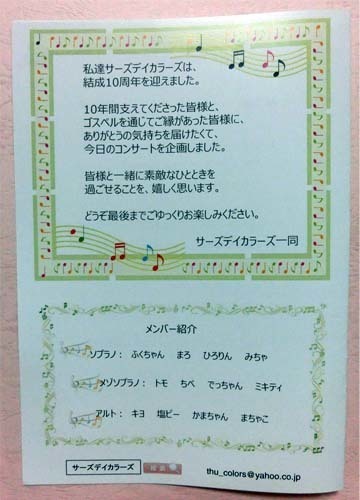 私達サーズデイカラーズは、
結成10周年を迎えました。
10年間支えてくださった皆様と、
ゴスペルを通じてご縁があった皆様に、
ありがとうの気持ちを届けたくて、
今日のコンサートを企画しました。
皆様と一緒に素敵なひとときを
過ごせることを、嬉しく思います。
どうぞ最後までごゆっくりお楽しみください。
サーズデイカラーズ一同
メンバー紹介
ソプラノ： ふくちゃん まろ ひろりん みちゃ
メゾソプラノ： トモ ちべ でっちゃん ミキティ
アルト： キヨ 塩ビー かまちゃん まちゃこ
サーズデイカラーズ 検索
thu_colors@yahoo.co.jp